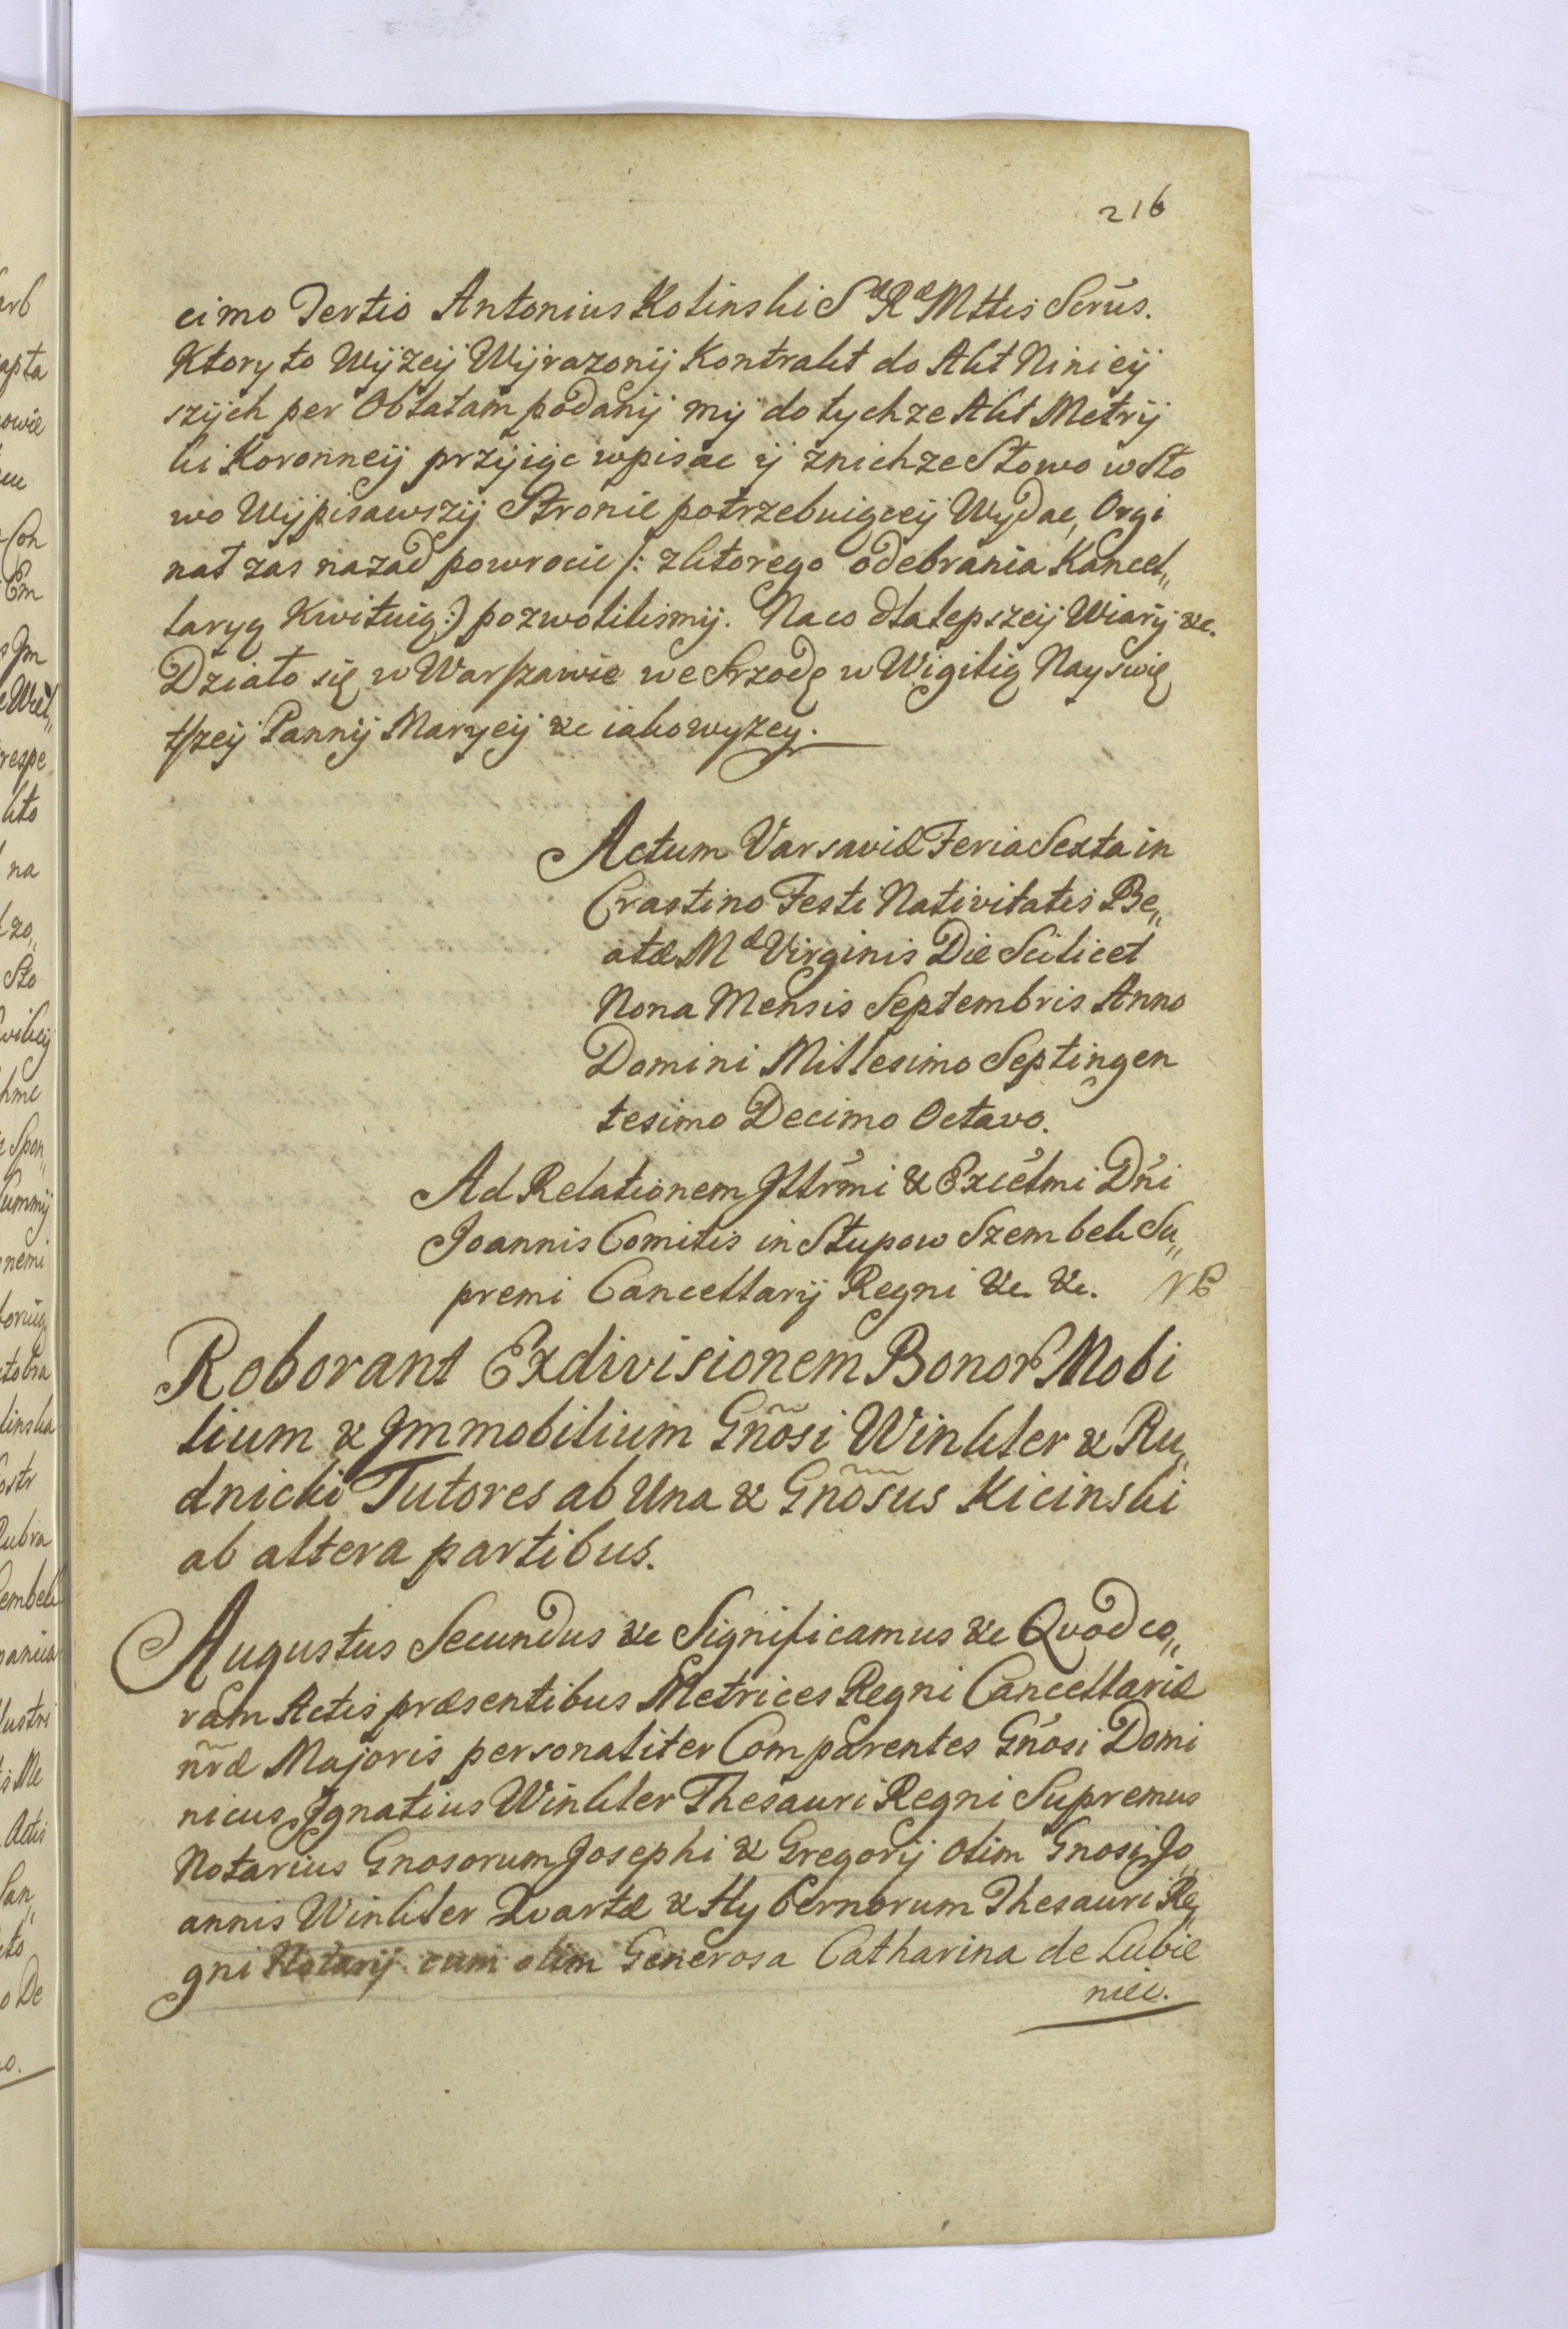 216
cimo Tertio Antonius Kolinski Sæ Ræ Mttis Scrus.
Ktory to Wyzey Wyrazony Kontrakt do Akt Niniey
szych per Oblatam podany my do tychze Akt Metry
ki Koronney przyiąc wpisac y znichze Słowo w Sło
wo Wypisawszy Stronie potrzebuiącey Wydac, Orgi
nał zas nazad powrocic /: zktorego odebrania Kancel„
laryą Kwituią :) pozwolilismy. Na co dla lepszey Wiary &c.
Działo się w Warszawie we Srzodę w Wigilią Nayswię
tszey Panny Maryey &c iako wyzey.
Actum Varsaviæ Feria Sexta in
Crastino Festi Nativitatis Be„
atæ Mæ Virginis Die Scilicet
Nona Mensis Septembris Anno
Domini Millesimo Septingen
tesimo Decimo Octavo.
Ad Relationem Illrmi & Excelmi Dni
Joannis Comitis in Słupow Szembek Su„
premi Cancellarij Regni &c. &c.
Roborant Exdivisionem Bonor Mobi
lium & Immobilium Gnosi Winkler & Ru„
dnicki Tutores ab Una & Gnosus Kicinski
ab altera partibus.
Augustus Secundus &c Significamus &c Quod co„
ram Actis præsentibus Metrices Regni Cancellariæ
nræ Majoris personaliter Comparentes Gnosi Domi
nicus Ignatius Winkler Thesauri Regni Supremus
Notarius Gnosorum Josephi & Gregorij olim Gnosi Jo„
annis Winkler Quartæ & Hybernorum Thesauri Re„
gni Notarij cum olim Generosa Catharina de Lubie
niec.